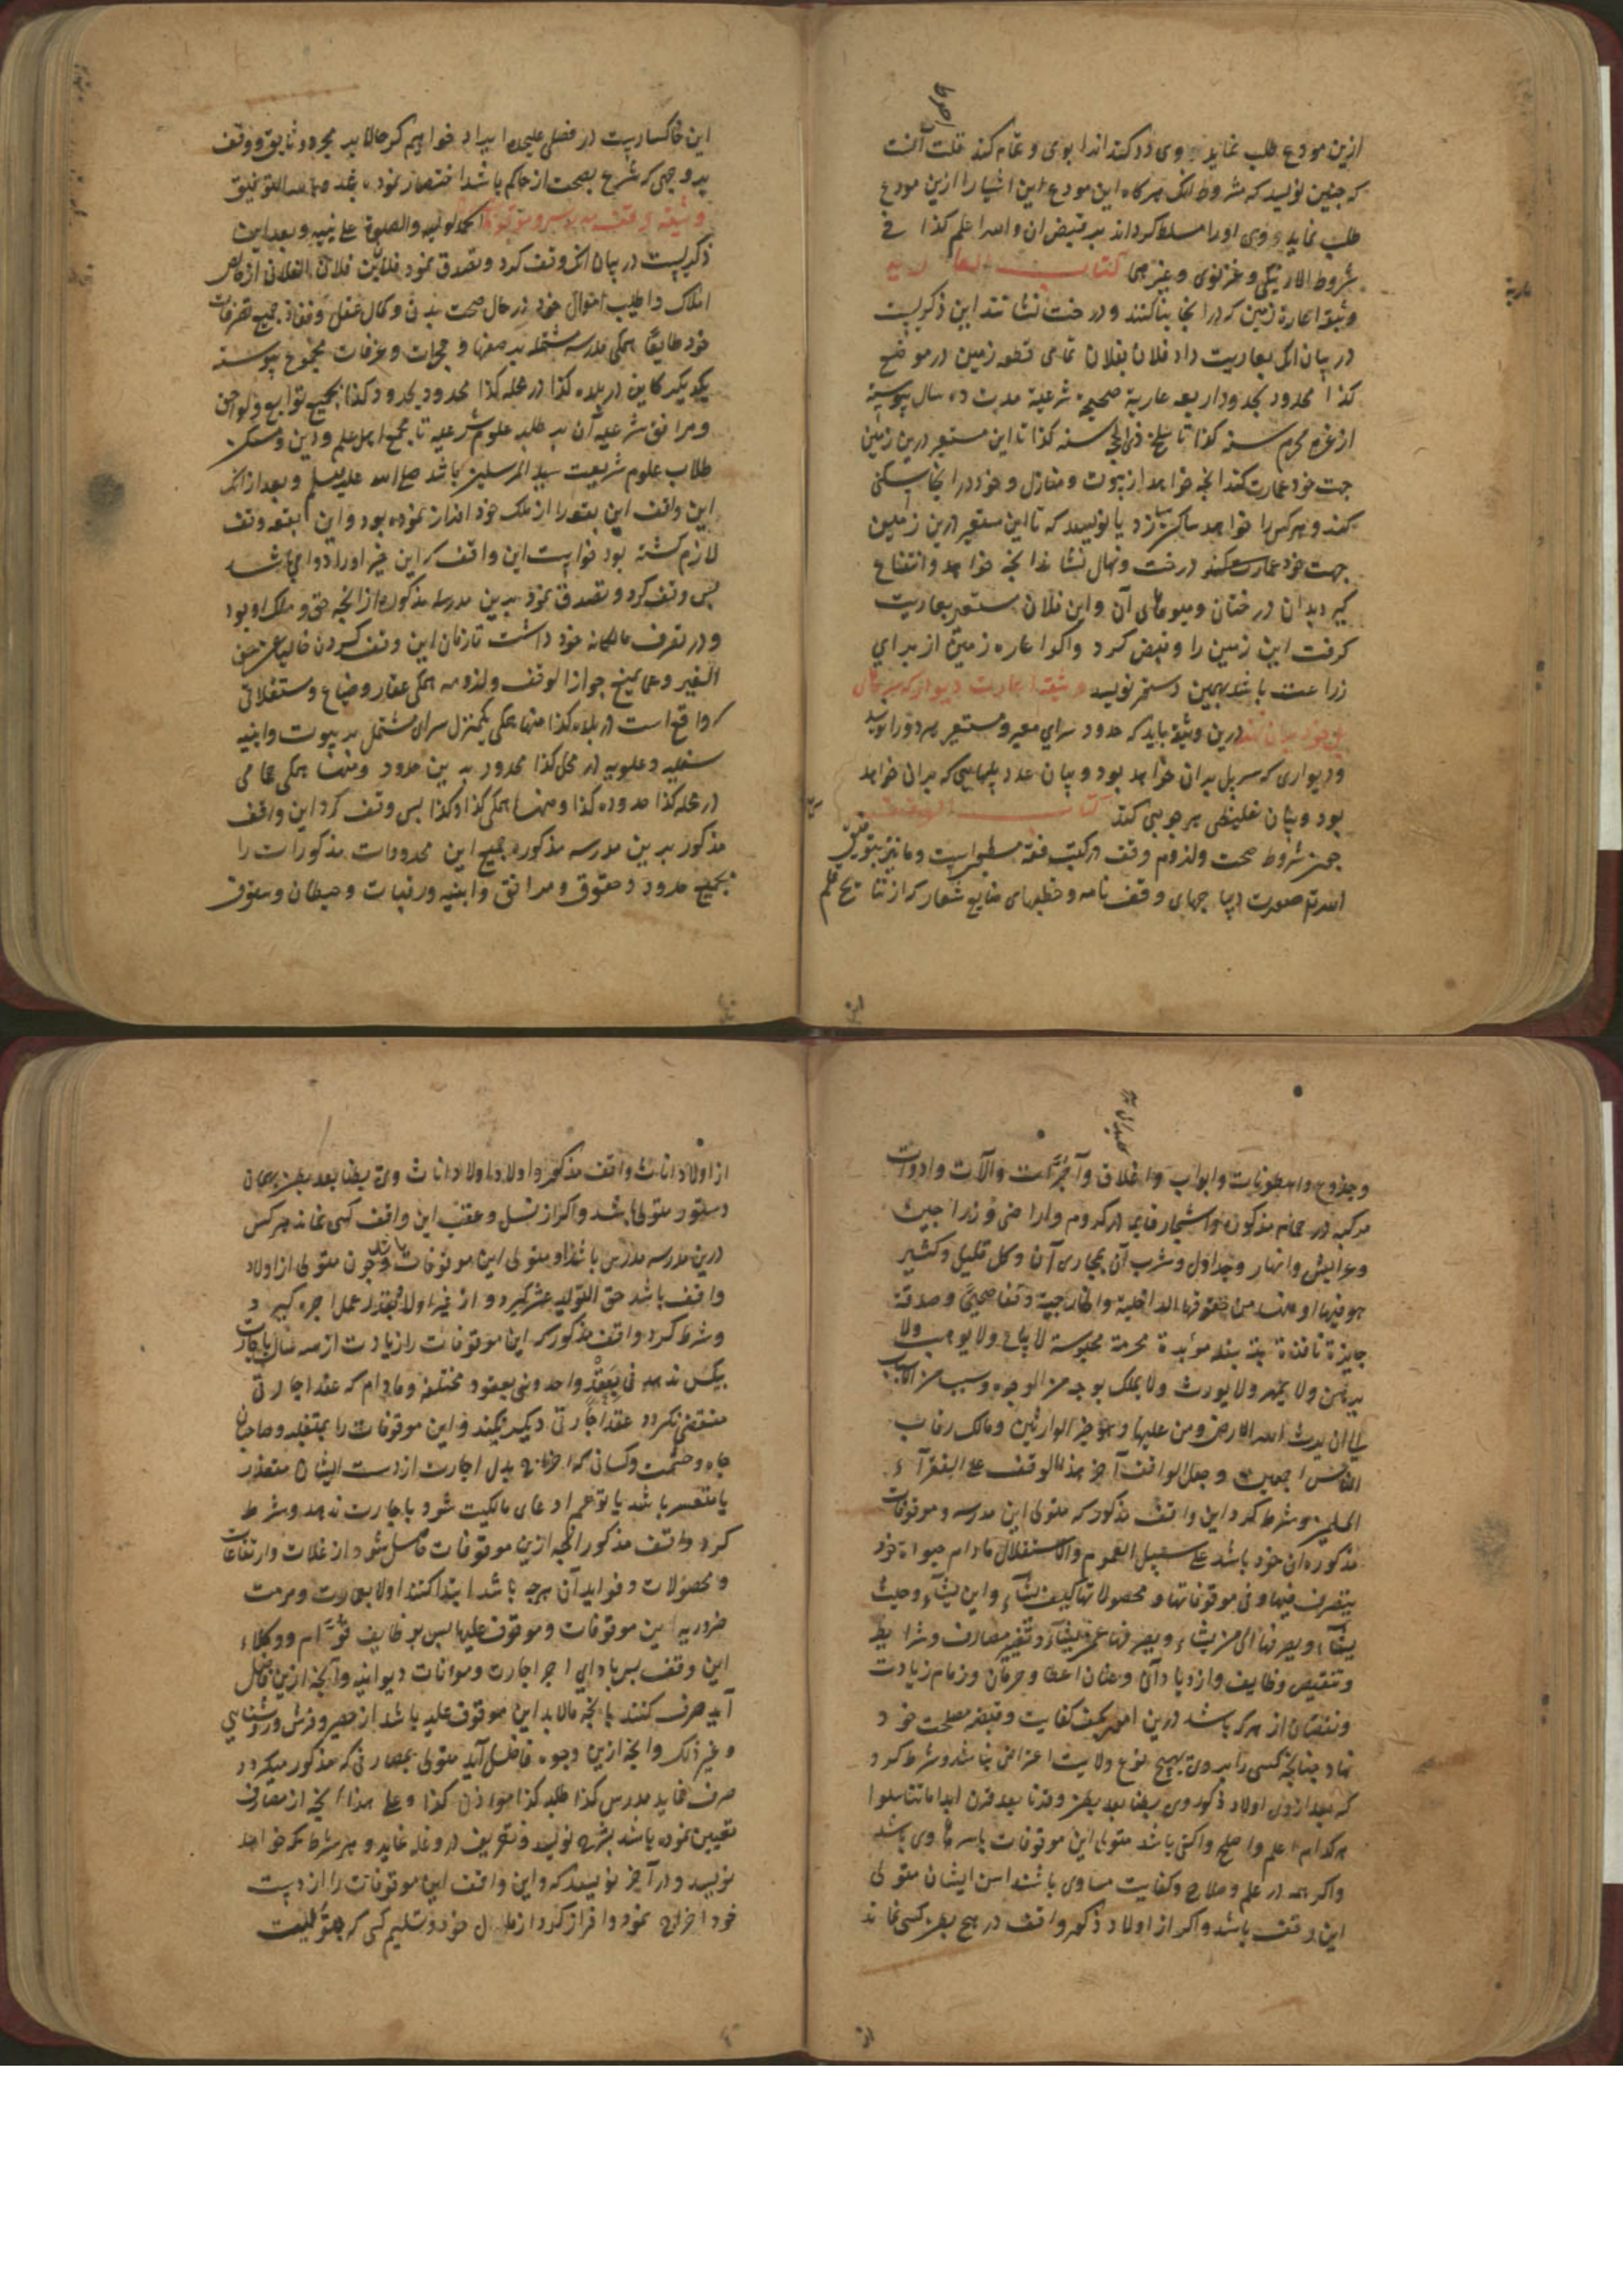 ازین مودع طلب نماید وی رد کند اندا بوی و تمام کند قلت آنست
که چنین نویسد که مشروط انک هرکاه این مودع این اشیا را ازین مودع
طلب نماید وی اورا مسلط کرداند بر قبض ان والله اعلم کذا فی
شروط الاوزیکی و غزنوی و غیرهما کتاب العاریه
وثیقه اعاره زمین که در انجا بنا کنند و درخت نشانند این ذکریست
در بیان انک بعاریت داد فلان بفلان تمامی قطعه زمین در موضع
کذا محدود بحدود اربعه عاریة صحیحة شرعیة مدت ده سال پیوسته
از غره محرم سنه کذا تا سلخ ذی الحجه سنه کذا تا این مستعیر درین زمین
جهت خود عمارت کند انچه خواهد از بیوت و منازل و خود در انجا سکنی
کند و هرکس را خواهد ساکن سازد یا نویسند که تا این مستعیر درین زمین
جهت خود درخت ونهال نشاند انچه خواهد وانتفاع
کیرد بدان درختان و میوهای آن و این فلان مستعیر بعاریت
کرفت این زمین را و قبض کرد و اکر اعاره زمین از برای
زراعت باشد بهمین دستور نویسد وثیقه اعارت دیوار که سرهای
پل خود بران نهد درین وثیقه باید که حدود سرای معیر و مستعیر هر دو را نویسد
و دیواری که سر پل بران خواهد بود و بیان عدد پلهایی که بران خواهد
بود و بیان غلیظی هر چوبی کند کتاب الوقف
چون شروط صحت ولزوم وقف در کتب فقه مسطورست و ما نیز بتوفیق
الله تعالی صورت دیباجهای وقف نامه و خطبهای صنایع شعار که از نتایج قلم
این خاکساریست در فصلی علیحده ایراد خواهیم کرد حالا بر مجرد وثایق وقف
بر وجهی که مشرح بصحت از حاکم باشد اختصار نموده شد وبالله التوفیق
وثیقه وقف مدرسه الحمد لولیه والصلوة علی نبیه وبعد این
ذکریست در بیان انک وقف کرد و تصدق نمود فلان بن فلان الفلانی از خالص
املاک واطیب اموال خود در حال صحت بدن وکمال عقل ونفاذ جمیع تصرفات
خود طایعا همکی مدرسه مشتمله بر صفها و حجرات و غرفات مجموع پیوسته
یکدیکر کاین در بلده کذا در محله کذا محدود بحدود کذا بجمیع توابع ولواحق
ومرافق شرعیه آن بر طلبه علوم شرعیه تا مجمع اهل علم و دین ومسکن
طلاب علوم شریعت سید المرسلین باشد صلی الله علیه وسلم و بعد از انک
این واقف این بقعه را از ملک خود افراز نموده بود و این بقعه وقف
لازم کشته بود خواست این واقف که این خیر اورا دوامی باشد
پس وقف کرد و تصدق نمود برین مدرسه مذکوره از انچه حق و ملک او بود
و در تصرف مالکانه خود داشت تا زمان این وقف کردن خالیا عن حق
الغیر وعما یمنع جواز الوقف ولزومه همکی عقار وضیاع ومستغلاتی
که واقع است در بلده کذا منها همکی یکمنزل سرای مشتمل بر بیوت وابنیه
سفلیه وعلویه در محل کذا محدود برین حدود ومنها همکی حمامی
در محله کذا حدوده کذا ومنها همکی کذا وکذا پس وقف کرد این واقف
مذکور برین مدرسه مذکوره جمیع این محدودات مذکورات را
بجمیع حدود وحقوق ومرافق وابنیه ورقبات وحیطان وسقوف
وجذوع واسطوانات وابواب واغلاق وآجرات وآلات وادوات
مرکبه در حمام مذکوره واشجار قایمه در کروم واراضی وزراجین
وعرایش وانهار وجداول وشرب آن بمجاری آن وکل قلیل وکثیر
هو فیها او منها من حقوقها الداخلیة والخارجیة وقفا صحیحا وصدقة
جایزة نافذة بتة بتلة مؤبدة محرمة محبوسة لا یباع ولا یوهب ولا
یرهن ولا یمهر ولا یورث ولا یملک بوجه من الوجوه وسبب من الاسباب
الی ان یرث الله الارض ومن علیها وهو خیر الوارثین ومالک رقاب
الناس اجمعین وجعل الواقف آخر هذا الوقف علی الفقرآء
المسلمین وشرط کرد این واقف مذکور که متولی این مدرسه وموقوفات
مذکوره ان خود باشد علی سبیل العموم والاستقلال مادام حیوة خود
یتصرف فیها وفی موقوفاتها ومحصولاتها کیف یشآء واین یشآء وحیث
یشآء ویصرفها الی من یشاء ویصرفها عمن یشآء وتغییر مصارف وشرایط
وتنقیص وظایف وازدیاد آن وعنان اعطا وحرمان وزمام زیادت
ونقصان از هرکه باشد درین امور بکف کفایت وقبضه مصلحت خود
نهاد چنانچه کسی را بروی بهیچ نوع ولایت اعتراض نباشد وشرط کرد
که بعد از وی اولاد ذکور وی بطنا بعد بطن وقرنا بعد قرن ابدا ما تناسلوا
هرکدام اعلم واصلح واکفی باشد متولی این موقوفات باسرها وی باشد
واکر همه در علم وصلاح وکفایت مساوی باشند اسن ایشان متولی
این وقف باشد واکر از اولاد ذکور واقف در هیچ بطن کسی نماند
از اولاد اناث واقف مذکور واولاد اولاد اناث وی بطنا بعد بطن بهمان
دستور متولی باشد واکر از نسل وعقب این واقف کسی نماند هرکس
درین مدرسه مدرس باشد او متولی این موقوفات باشد وچون متولی از اولاد
واقف باشد حق التولیه عشر کیرد و از غیر اولاد بقدر عمل اجره کیرد
وشرط کرد واقف مذکور که این موقوفات را زیادت از سه سال باجارت
بیکس ندهد فی عقد واحد وفی عقود مختلفه ومادام که عقد اجارتی
منقضی نکردد عقد اجارتی دیکر نکند واین موقوفات را بمتغلبه وصاحبان
جاه وحشمت وکسانی که اخراج بدل اجارت از دست ایشان متعذر
یا متعسر باشد یا توهم ادعای مالکیت شود باجارت ندهد وشرط
کرد واقف مذکور انچه ازین موقوفات حاصل شود از غلات وارتفاعات
ومحصولات وفواید آن هرچه باشد ابتدا کنند اولا بعمارت ومرمت
ضروریه این موقوفات وموقوف علیها پس بوظایف قوام ووکلاء
این وقف پس بادای اجر اجارت ومؤنات دیوانیه وآنچه ازین فاضل
آید صرف کنند بانچه مالابد این موقوف علیه باشد از حصیر وفرش وروشنایی
وغیر ذلک وانچه ازین وجوه فاضل آید متولی بمصارفی که مذکور میکردد
صرف نماید مدرس کذا طلبه کذا مؤذن کذا وعلی هذا انچه از مصارف
تعیین نموده باشد بشرح نویسد وتعریف در وغله نماید وهر شرط که خواهد
نویسد ودر آخر نویسد که واین واقف این موقوفات را از دست
خود اخراج نمود وافراز کرد از مال خود وتسلیم کسی که بتولیت